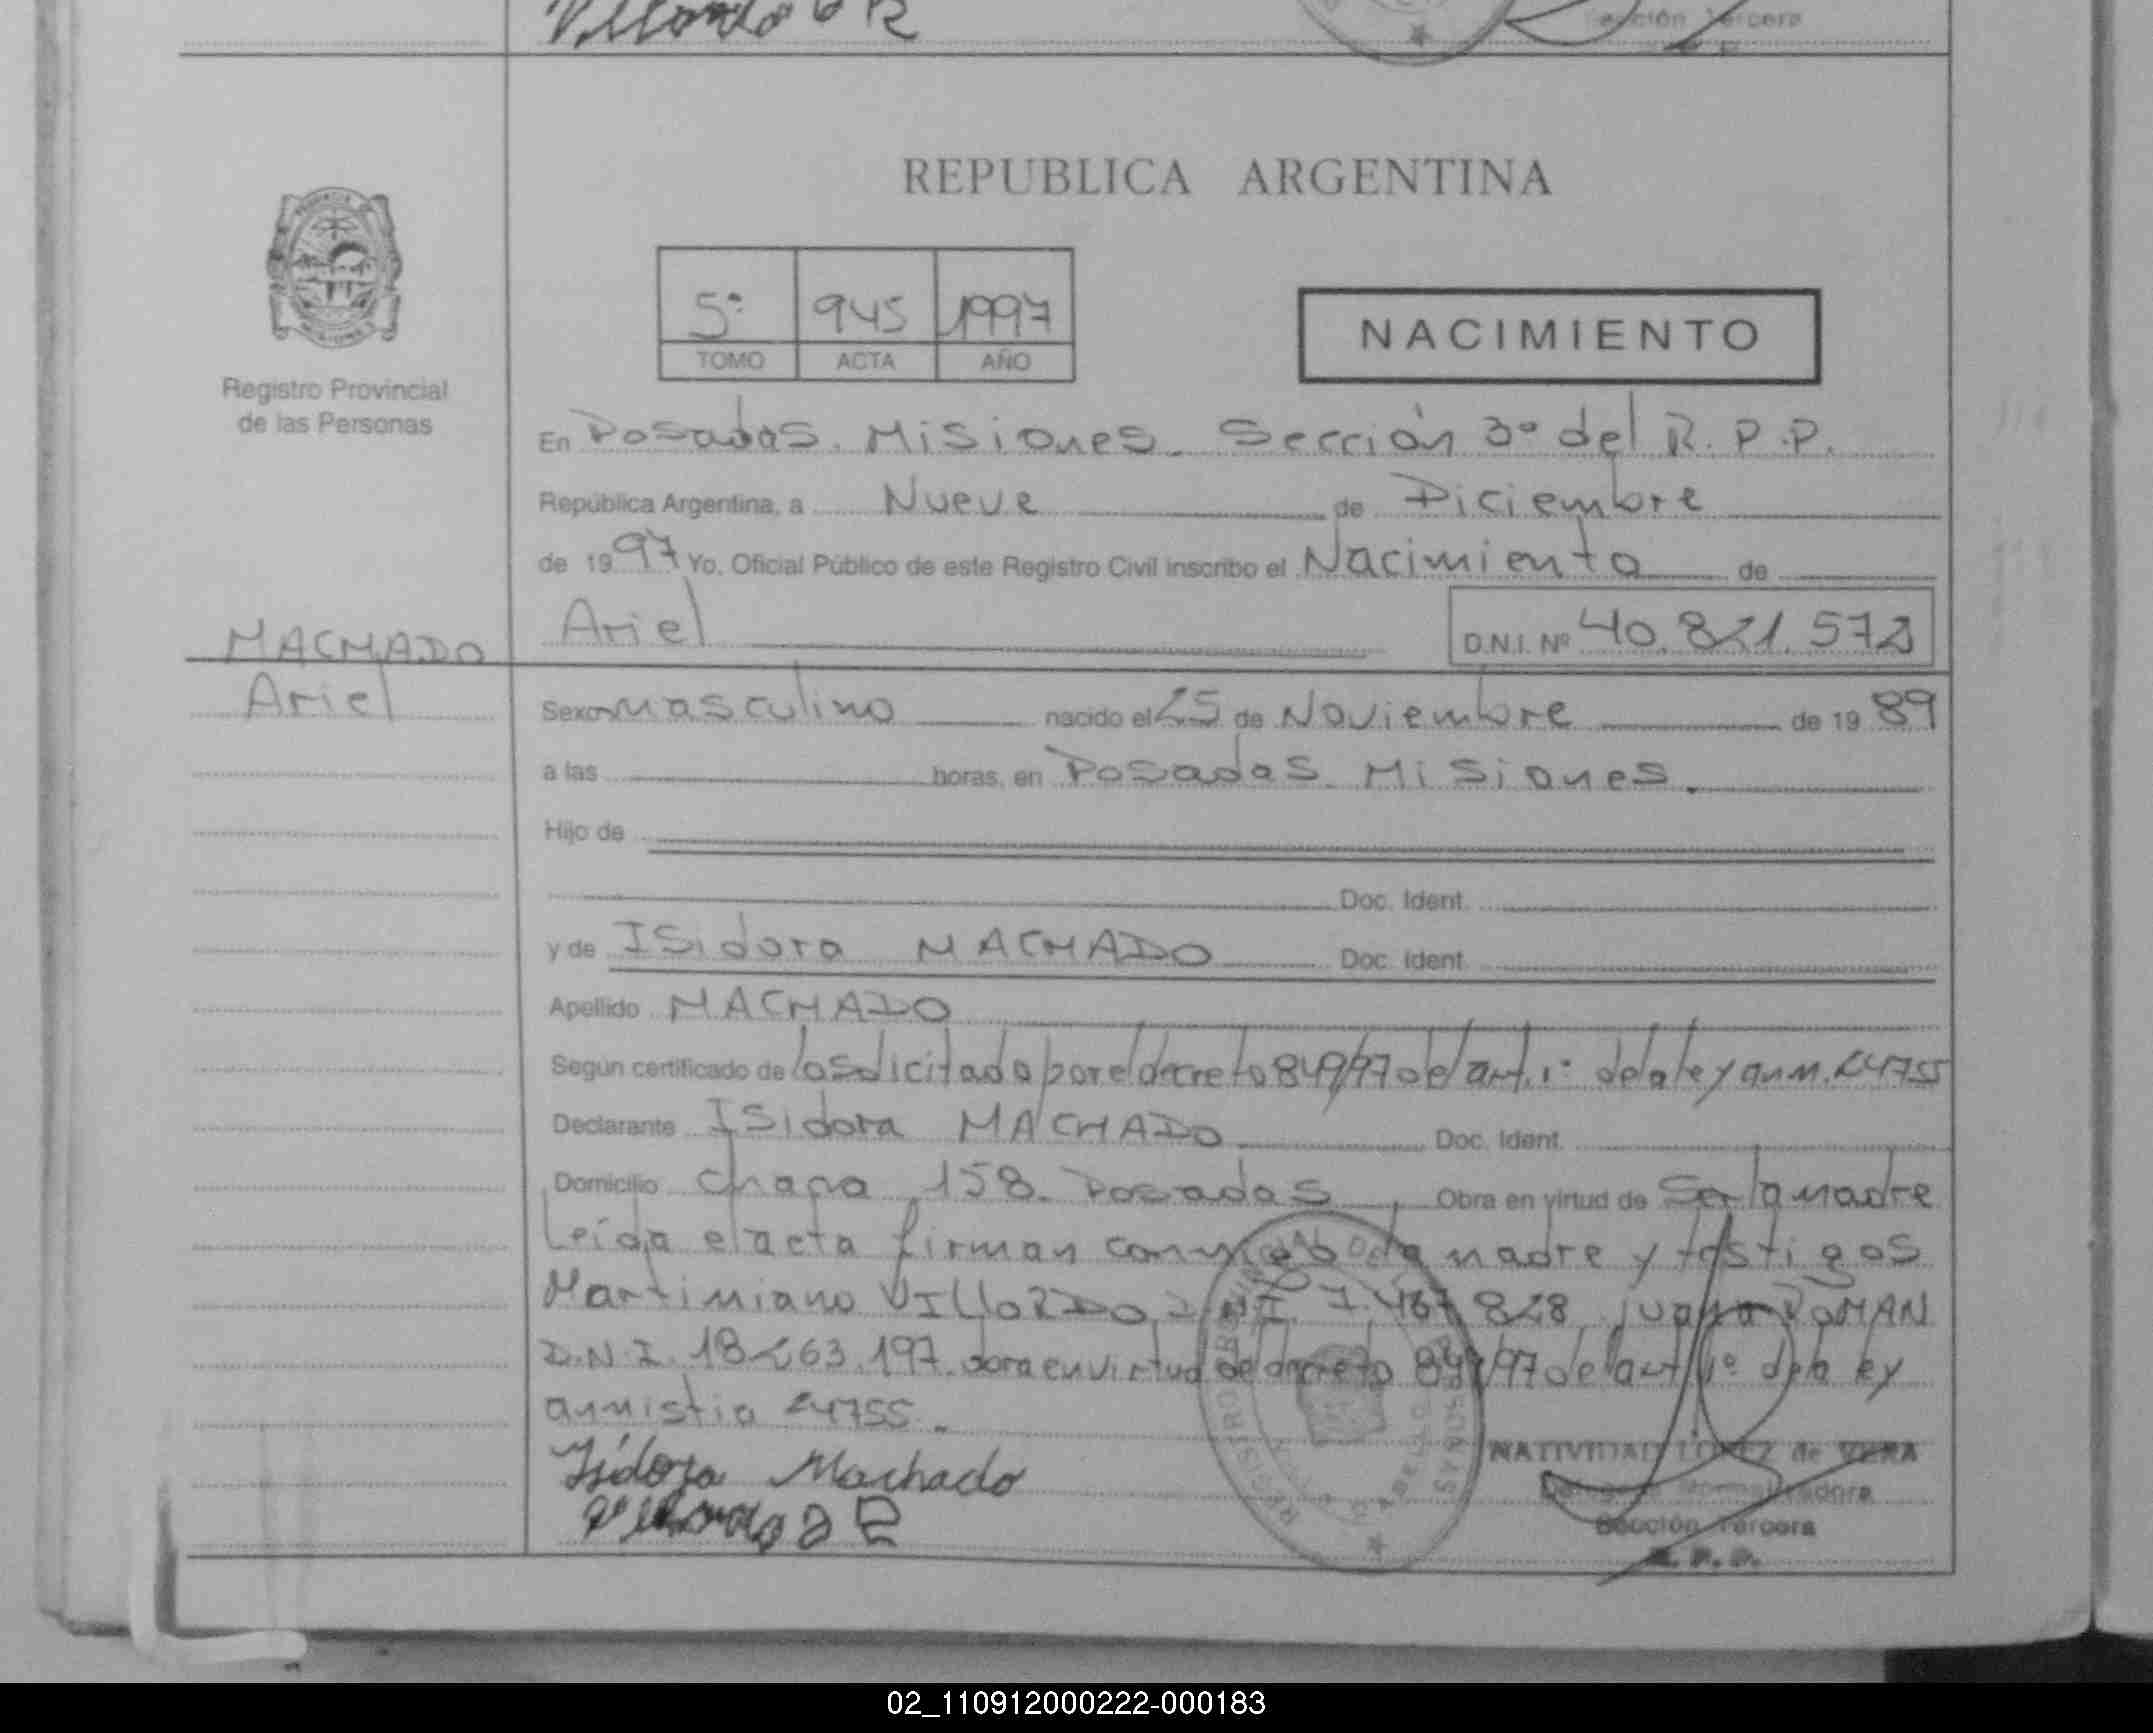 Villordo
Sección Tercera
REPUBLICA ARGENTINA
5º 945 1997
TOMO ACTA AÑO
NACIMIENTO
Registro Provincial
de las Personas
En Posadas. Misiones. Sección 3º del R. P. P.
República Argentina, a Nueve de Diciembre
de 1997 Yo. Oficial Público de este Registro Civil inscribo el Nacimiento de
MACHADO
Ariel
Ariel D.N.I. Nº 40.821.572
Sexo masculino nacido el 25 de Noviembre de 1989
a las horas, en Posadas. Misiones.
Hijo de
Doc. Ident.
y de Isidora MACHADO Doc. Ident.
Apellido MACHADO
Según certificado de lo solicitado por el decreto 849/97 del art. 1º de la ley amn. 24755
Declarante Isidora MACHADO Doc. Ident.
Domicilio chapa 158. Posadas Obra en virtud de Ser la madre
Leída el acta firman conmigo la madre y testigos
Martimiano VILLORDO D.N.I. 7.467.828 juana ROMAN
D.N.I. 18263.197. obra en virtud de decreto 849/97 del art 1º de la ley
amnistia 24755.
Isidora Machado
NATIVIDAD LOPEZ de VERA
Sección Tercera
R. P. P.
02_110912000222-000183